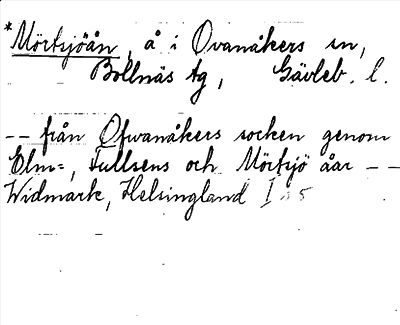 *Mörtsjöån, å i Ovanåkers sn,
Bollnäs tg, Gävleb. l.
-- från Ofvanåkers socken genom
Elm=, Tullsens och Mörtsjö åar --
Widmark, Helsingland I